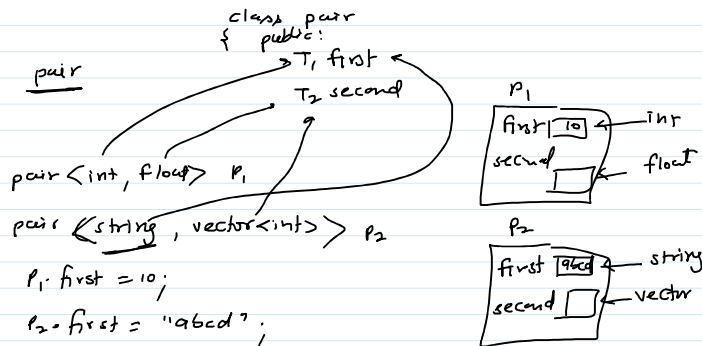 class pair
{ public:
T1 first
pair
T2 second
pair <int, float> P1
pair <string, vector<int>> P2
P1. first = 10;
P2. first = "abcd";
P1
first 10 int
second float
P2
first abcd string
second vector